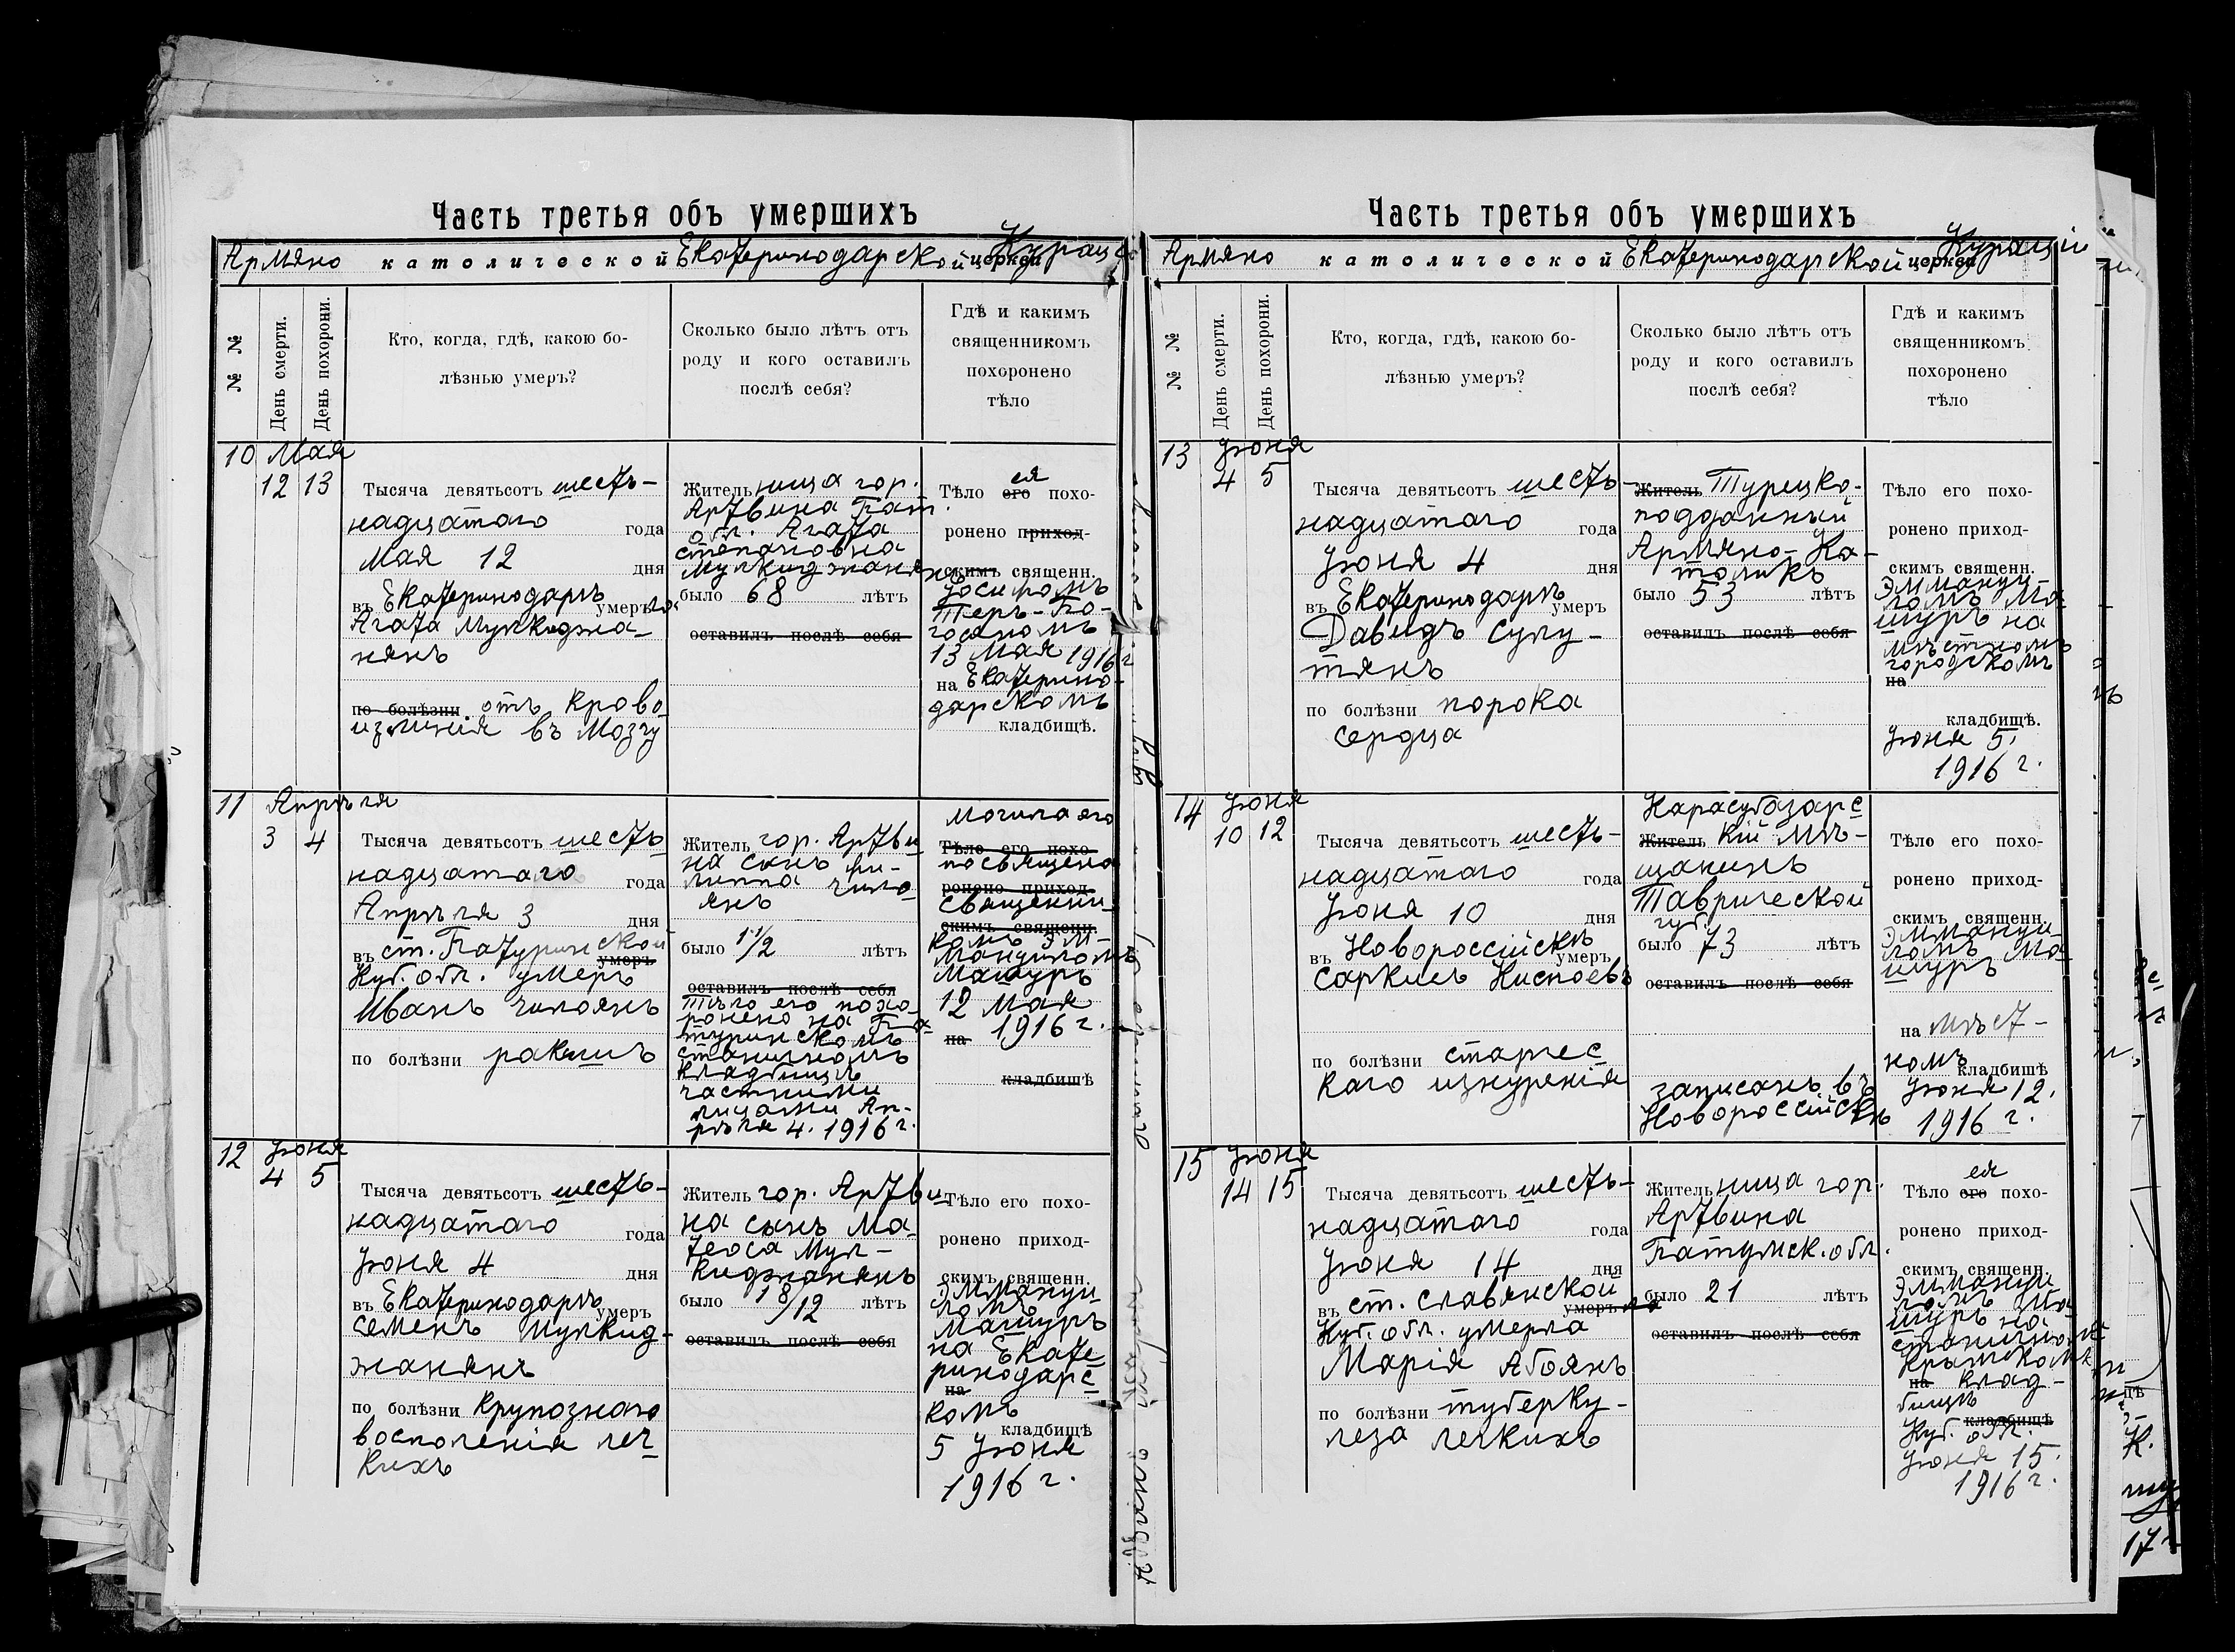 Часть третья объ умершихъ
Армяно католической Екатеринодарской церкви Курац
№ №
День смерти.
День похорони.
Кто, когда, гдѣ, какою бо-
лѣзнью умеръ?
Сколько было лѣтъ отъ
роду и кого оставилъ
послѣ себя?
Гдѣ и какимъ
священникомъ
похоронено
тѣло
10 Мая
12 13
Тысяча девятьсотъ шесть-
надцатаго года
Мая 12 дня
въ Екатеринодарѣ умерла
Агата Мулкиджа-
нянъ
по болѣзни отъ крово
излиянія въ мозгу
Жительница гор.
Артвина Бат.
обл. Агата
Степановна
Мулкиджанянъ
было 68 лѣтъ
оставилъ послѣ себя
ея
Тѣло его похо-
ронено приход-
скимъ священн.
Іосифомъ
Теръ-По-
госяномъ
13 Мая 1916 г
на Екатерино-
дарскомъ
кладбищѣ.
11 Апрѣля
3 4
Тысяча девятьсотъ шесть
надцатаго года
Апрѣля 3 дня
въ ст. Батуринской
умеръ
Куб. обл. умеръ
Иванъ Чилоянъ
по болѣзни
Житель гор. Артви
на сынъ Фи-
липпа Чило
янъ
было 1 1/2 лѣтъ
оставилъ послѣ себя
Тѣло его похо-
ронено на Ба
туринскомъ
станичномъ
кладбищѣ
частными
лицами Ап-
рѣля 4. 1916 г.
Могила его
Тѣло его похо-
посвящена
ронено приход-
священни-
скимъ священн.
комъ Эм-
мануиломъ
Машуръ
12 Мая
на 1916 г.
кладбищѣ
12 Іюня
4 5
Тысяча девятьсотъ шесть-
надцатаго года
Іюня 4 дня
въ Екатеринодарѣ умеръ
Семенъ Мулкид-
жанянъ
по болѣзни крупознаго
воспаленія лег
кихъ
Житель гор. Артви
на сынъ Ма
теоса Мул-
киджанянъ
было 1 8/12 лѣтъ
оставилъ послѣ себя
Тѣло его похо-
ронено приход-
скимъ священн.
Эммануи
ломъ
Машуръ
на Екате
ринодарс
на
комъ
кладбищѣ
5 Іюня
1916 г.
Часть третья объ умершихъ
Армяно католической Екатеринодарской церкви Курацiи
№ №
День смерти.
День похорони.
Кто, когда, гдѣ, какою бо-
лѣзнью умеръ?
Сколько было лѣтъ отъ
роду и кого оставилъ
послѣ себя?
Гдѣ и какимъ
священникомъ
похоронено
тѣло
13 Іюня
4 5
Тысяча девятьсотъ шесть-
надцатаго года
Іюня 4 дня
въ Екатеринодарѣ умеръ
Давидъ Сулу-
тянъ
по болѣзни порока
сердца
Житель Турецко-
подданный
Армяно-Ка-
толикъ
было 53 лѣтъ
оставилъ послѣ себя
Тѣло его похо-
ронено приход-
скимъ священн.
Эммануи-
ломъ Ма
шуръ на
мѣстномъ
городскомъ
на
кладбищѣ.
Іюня 5.
1916 г.
14 Іюня
10 12
Тысяча девятьсотъ шесть-
надцатаго года
Іюня 10 дня
въ Новороссійскѣ умеръ
Саркисъ Киспоевъ
по болѣзни старчес
каго изнуренія
Карасубазарс
Житель кій мѣ-
щанинъ
Таврической
губ.
было 73 лѣтъ
оставилъ послѣ себя
записанъ въ
Новороссійскѣ
Тѣло его похо-
ронено приход-
скимъ священн.
Эммануи
ломъ Ма
шуръ
на мѣст-
номъ
кладбищѣ
Іюня 12.
1916 г.
15 Іюня
14 15
Тысяча девятьсотъ шесть-
надцатаго года
Іюня 14 дня
въ ст. Славянской
умеръ
Куб. обл. умерла
Марія Абоянъ
по болѣзни туберку-
леза легкихъ
Жительница гор.
Артвина
Батумск. обл.
было 21 лѣтъ
оставилъ послѣ себя
ея
Тѣло его похо-
ронено приход-
скимъ священн.
Эммануи
ломъ Ма
шуръ на
станичномъ
Крымскомъ
на клад-
бищѣ
кладбищѣ
Куб. обл.
Іюня 15.
1916 г.